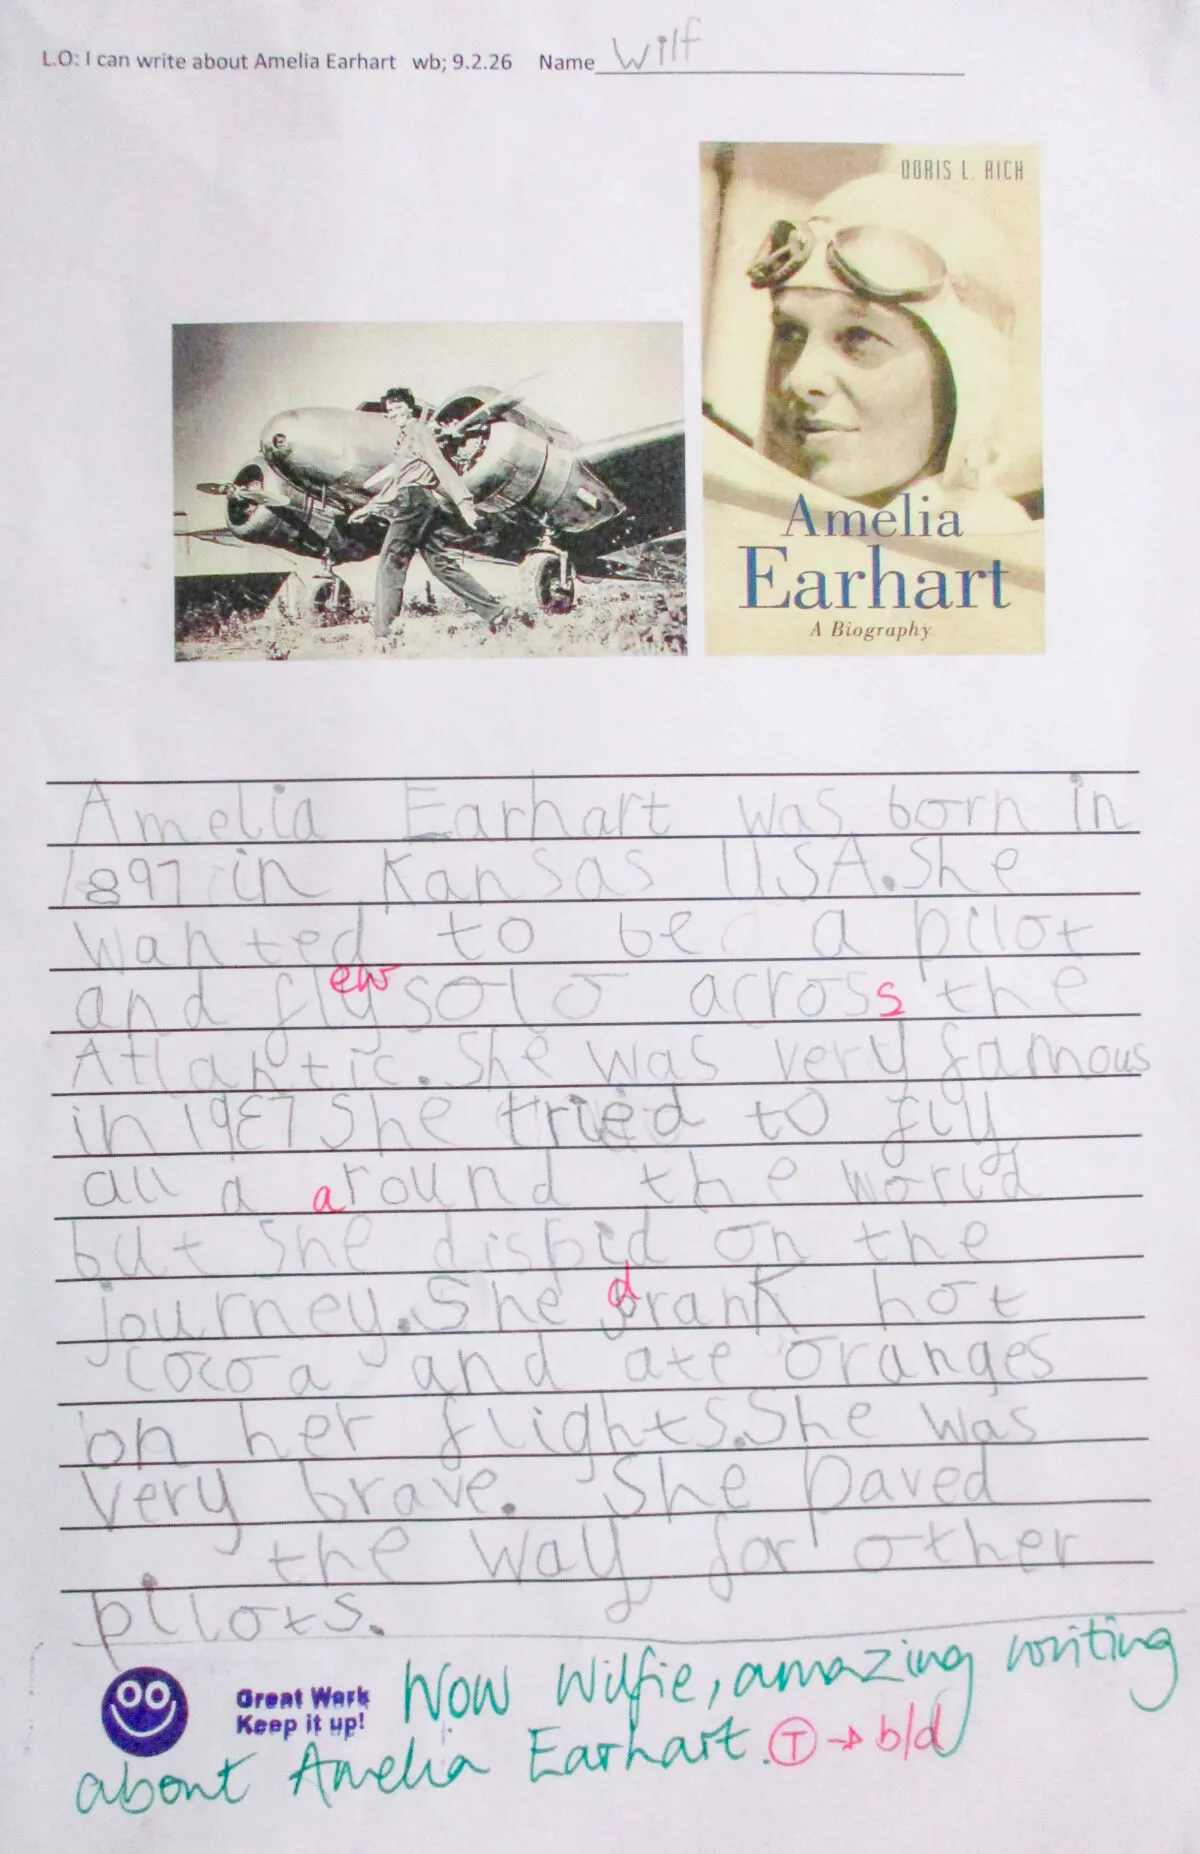 L.O: I can write about Amelia Earhart wb; 9.2.26 Name Wilf
DORIS L. RICH
Amelia
Earhart
A Biography
Amelia Earhart was born in
1897 in Kansas USA. She
wanted to be a pilot
and fly ew solo across the
Atlantic. She was very famous
in 1937 She tried to fly
all a around the world
but she disbid on the
journey. She drank hot
cocoa and ate oranges
on her flights. She was
very brave. She paved
the way for other
pilots.
Great Work
Keep it up!
Wow Wilfie, amazing writing
about Amelia Earhart. T → b/d